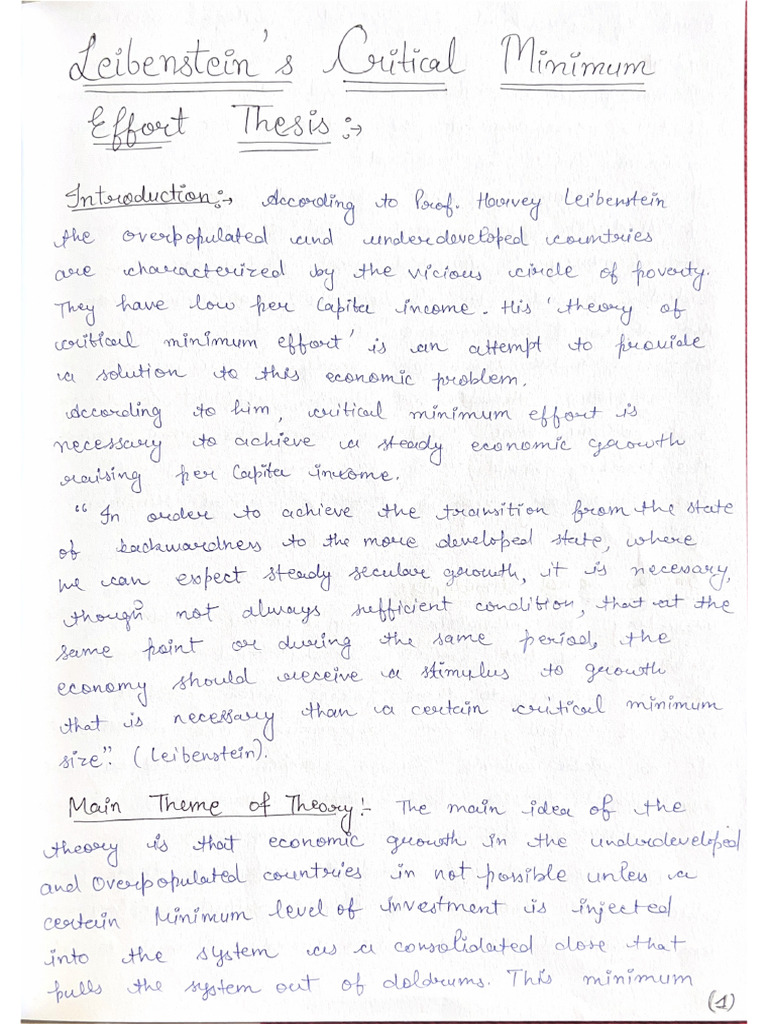 Leibenstein's Critical Minimum
Effort Thesis :→
Introduction :→ According to Prof. Harvey Leibenstein
the overpopulated and underdeveloped countries
are characterized by the vicious circle of poverty.
They have low per Capita income. His 'theory of
critical minimum effort' is an attempt to provide
a solution to this economic problem.
According to him, critical minimum effort is
necessary to achieve a steady economic growth
raising per Capita income.
"In order to achieve the transition from the state
of backwardness to the more developed state, where
we can expect steady secular growth, it is necesary,
though not always sufficient condition, that at the
same point or during the same period, the
economy should receive a stimulus to growth
that is necessary than a certain critical minimum
size". (Leibenstein).
Main Theme of Theory :- The main idea of the
theory is that economic growth in the underdeveloped
and Overpopulated countries in not possible unless a
certain Minimum level of Investment is injected
into the system as a consolidated dose that
pulls the system out of doldrums. This minimum
(1)